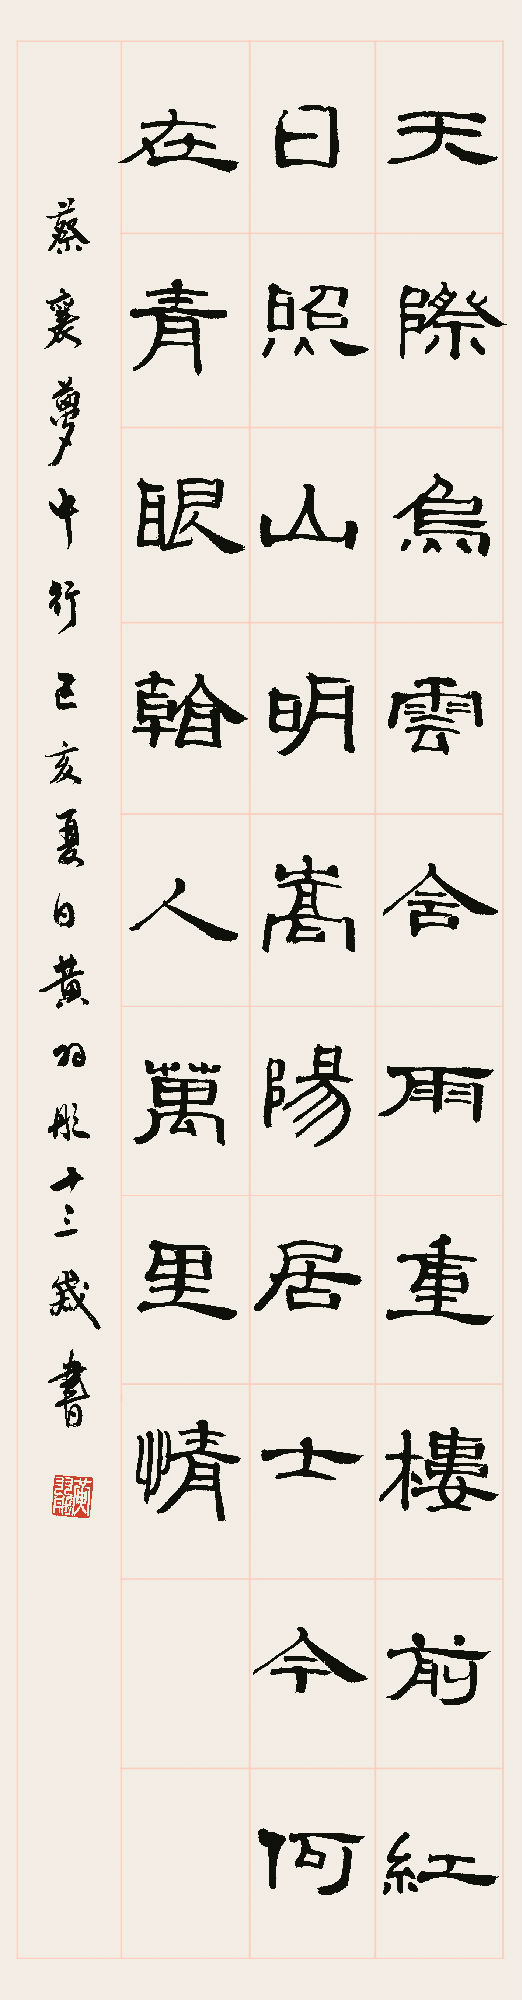 天際烏雲含雨重樓前紅
日照山明嵩陽居士今何
在青眼看人萬里情
蔡襄夢中行己亥夏日黃羽彤十三歲書